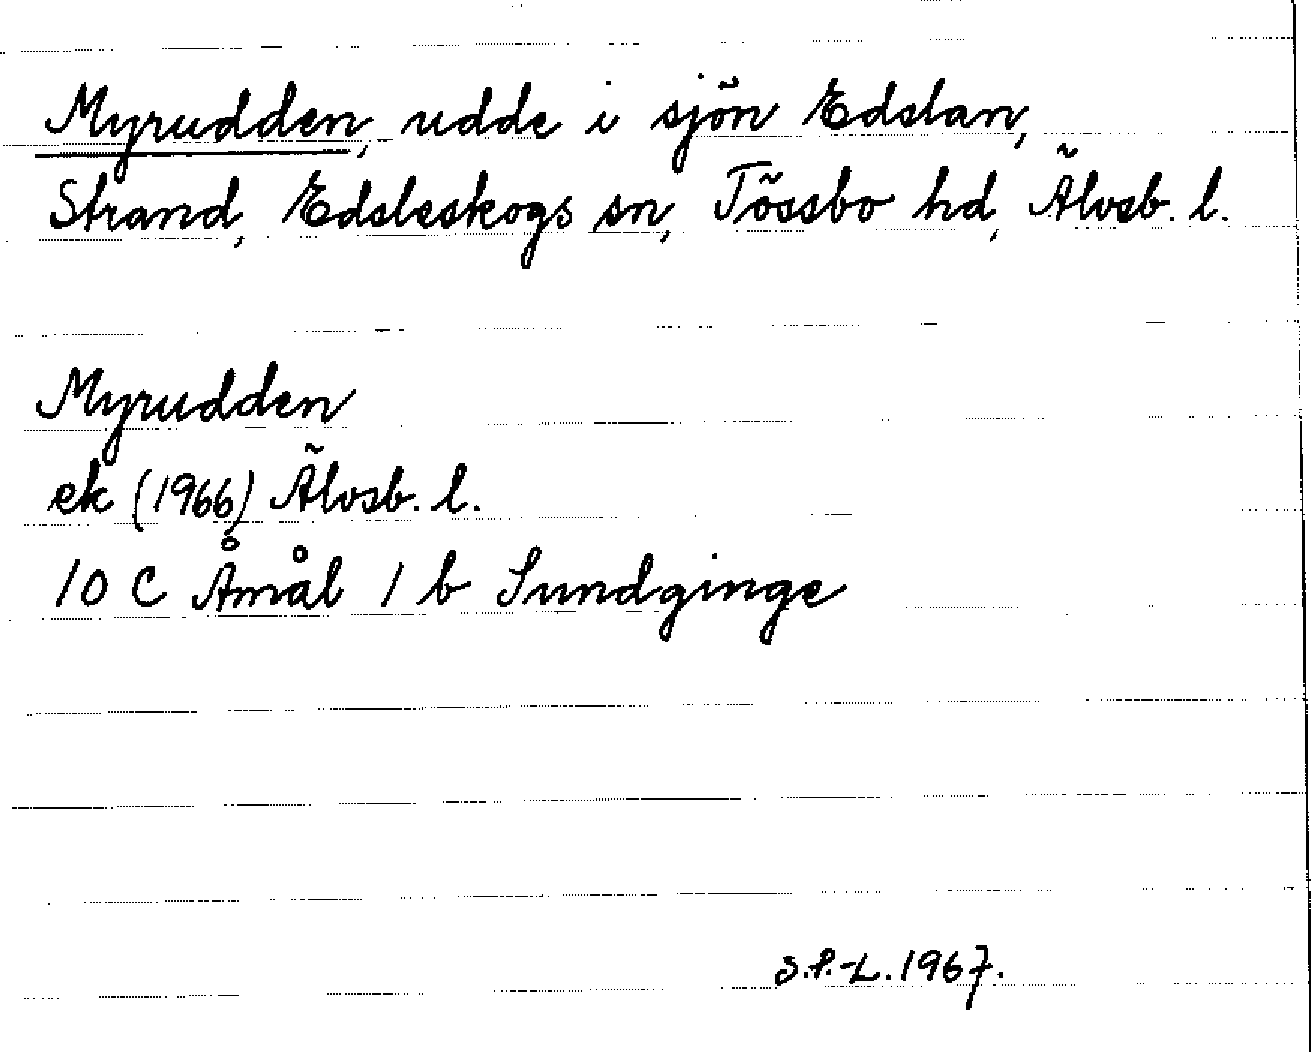 Myrudden, udde i sjön Edslan,
Strand, Edsleskogs sn, Tössbo hd, Älvsb. l.
Myrudden
ek (1966) Älvsb. l.
10 C Åmål 1 b Sundginge
S.P.-L. 1967.